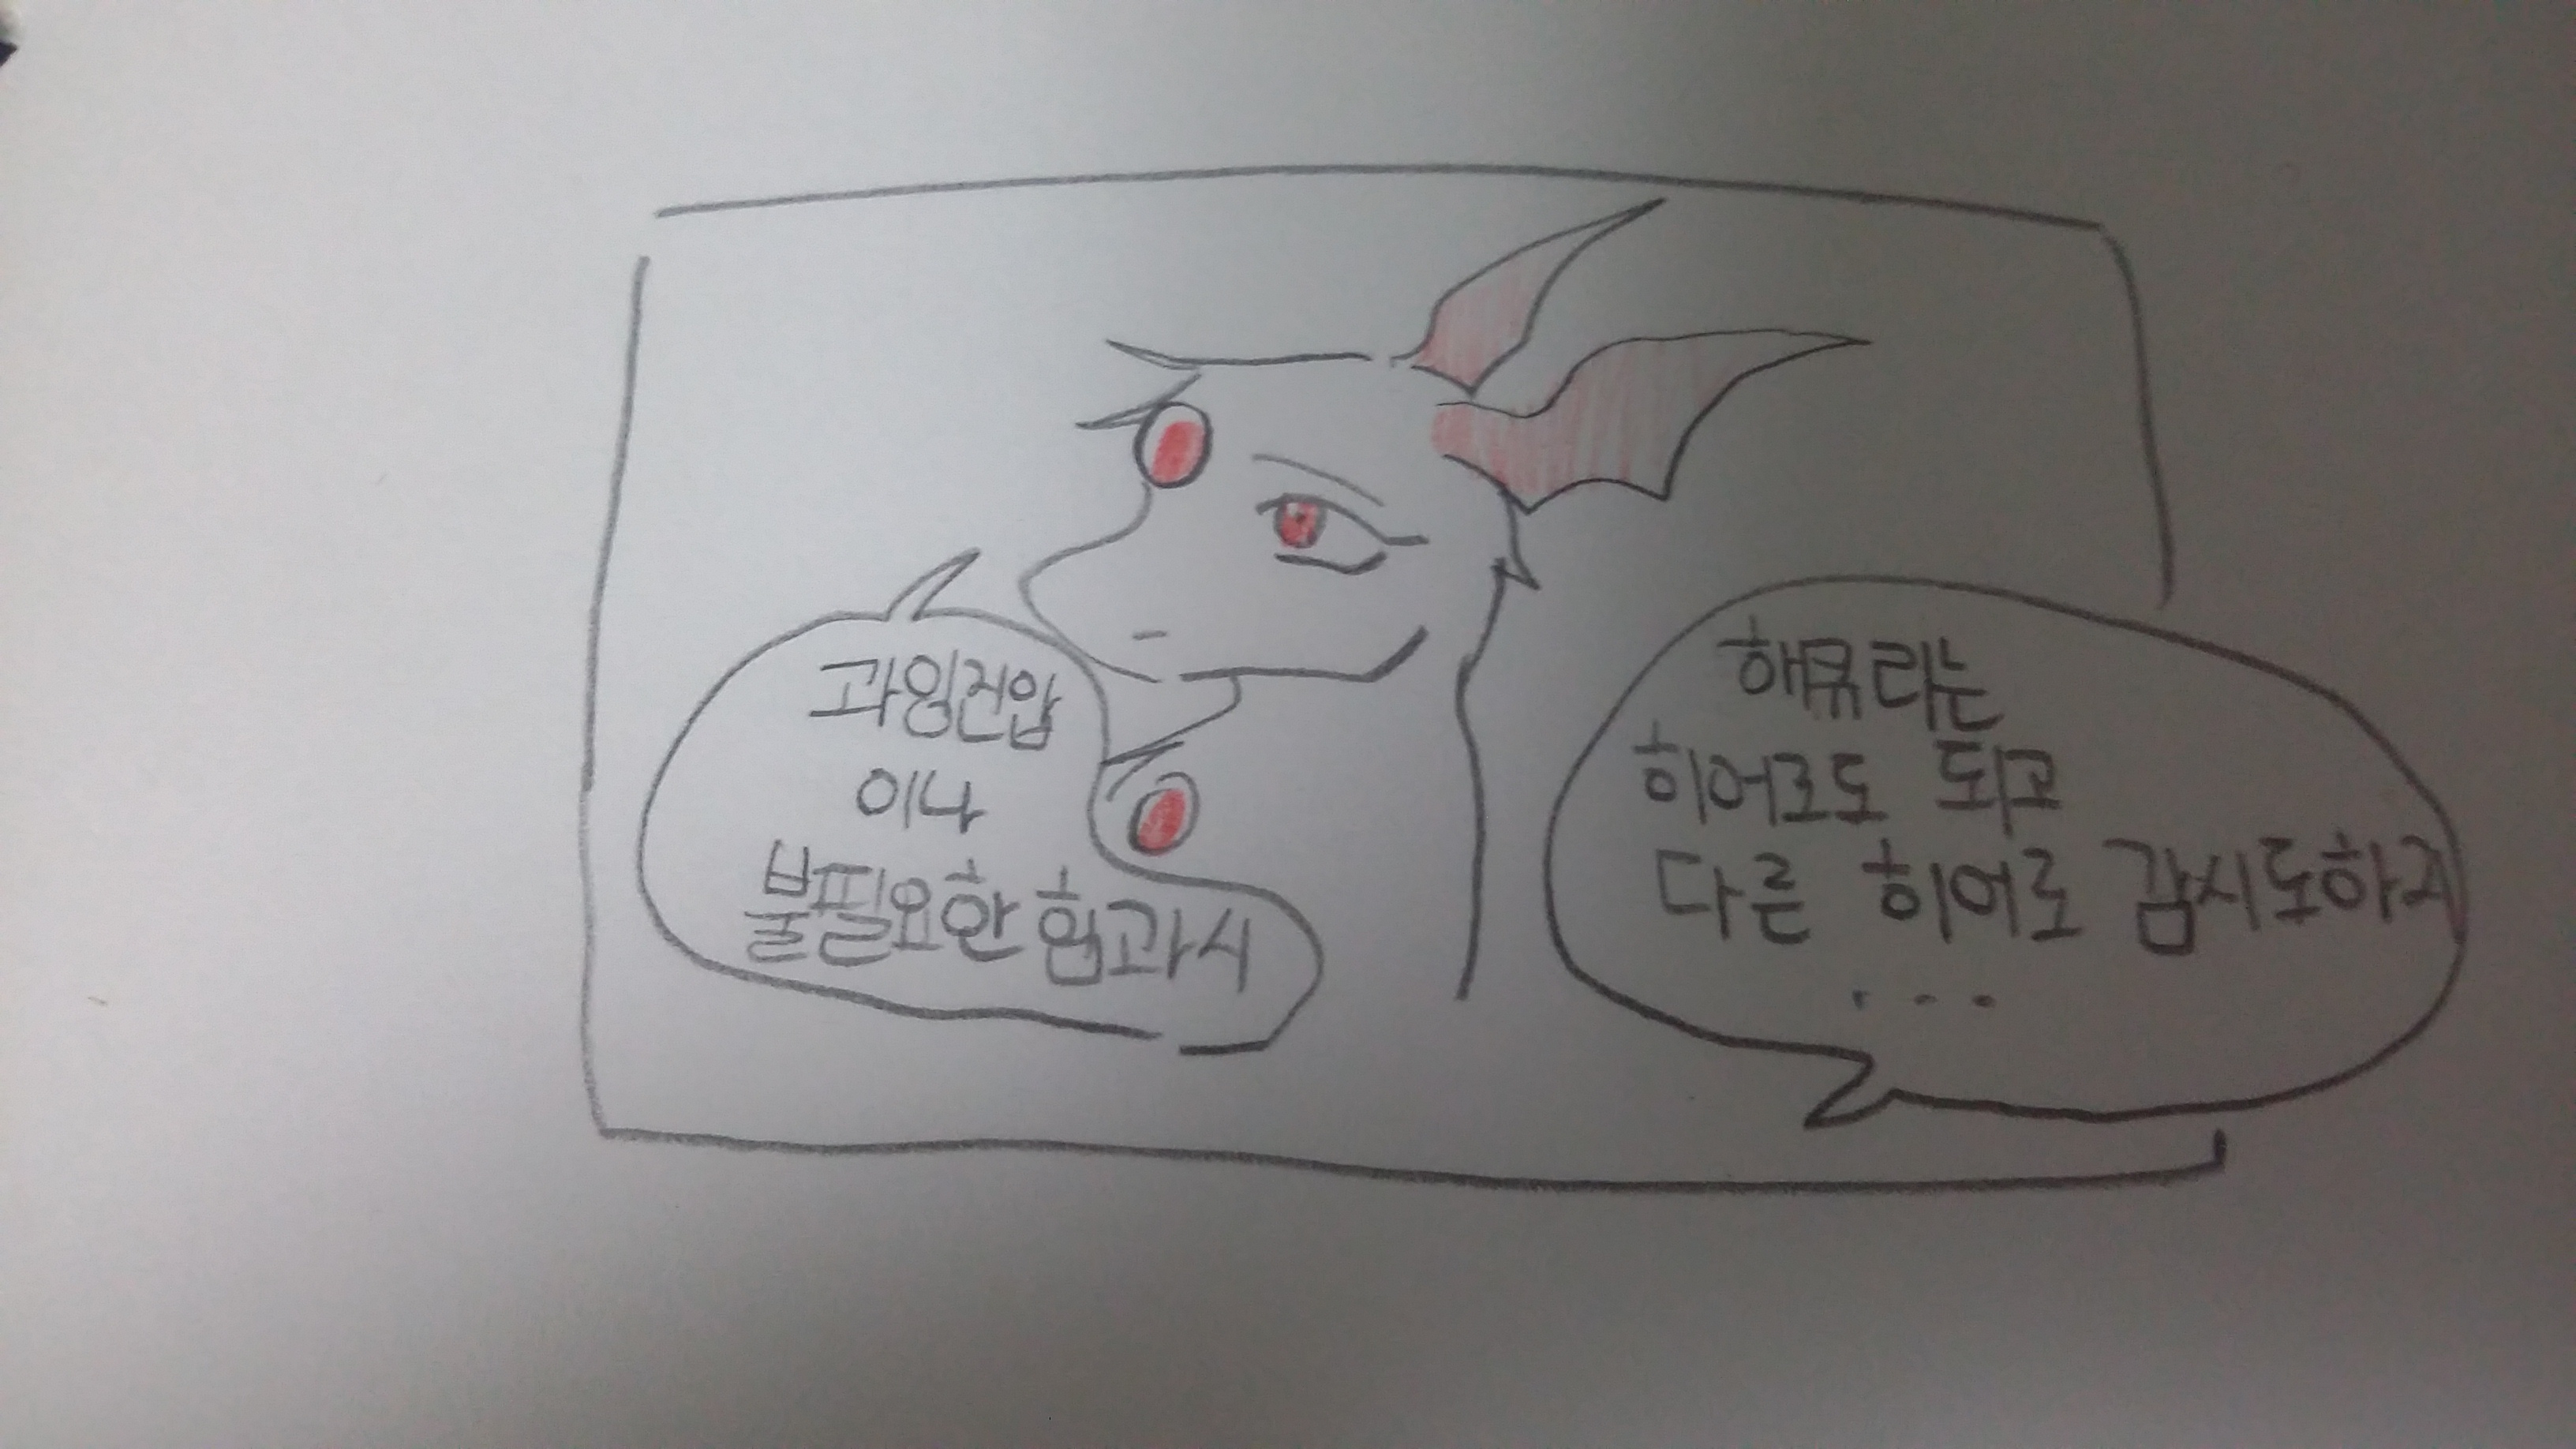 과잉진압
이나
불필요한 힘과시
해큐라는
히어로도 되고
다른 히어로 감시도하지
...